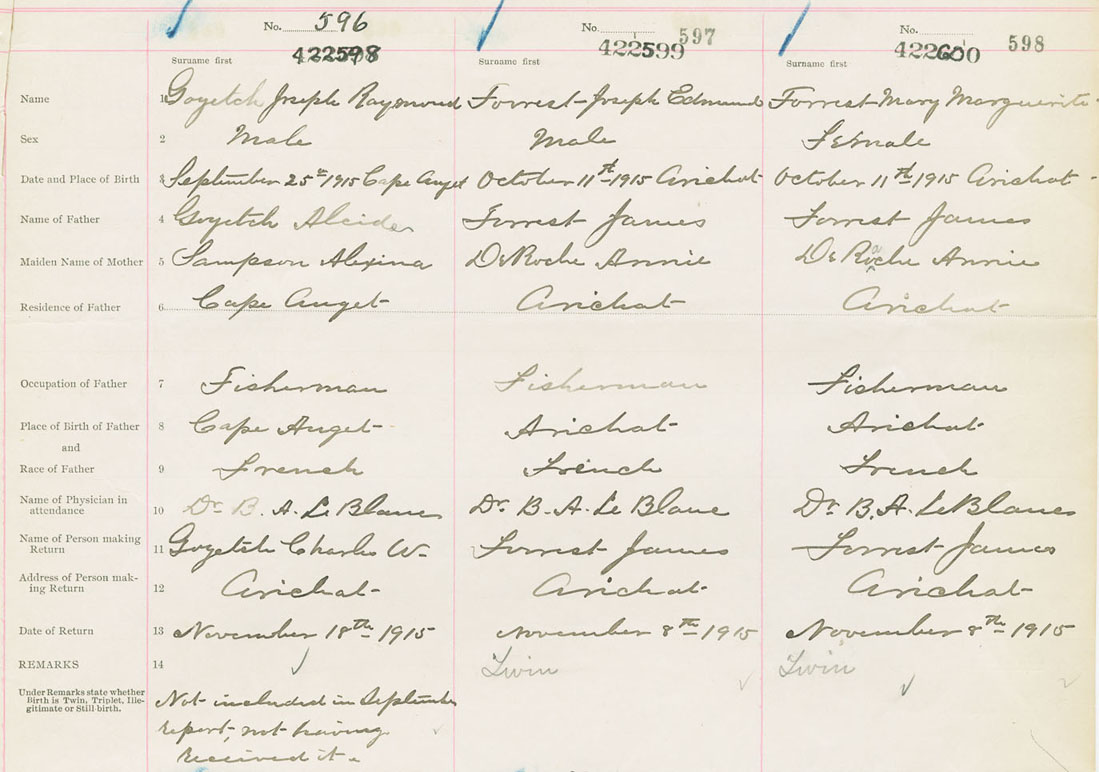 No. 596 No. 597 No. 598
422598 422599 422600
Surname first Surname first Surname first
Name 1 Goyetch Joseph Raymond Forrest-Joseph Edmund Forrest-Mary Marguerite
Sex 2 Male Male Female
Date and Place of Birth 3 September 25th 1915 Cape Auget October 11th 1915 Arichat October 11th 1915 Arichat
Name of Father 4 Goyetch Alcide Forrest James Forrest James
Maiden Name of Mother 5 Sampson Alexina DeRoche Annie DeRoache Annie
Residence of Father 6 Cape Auget Arichat Arichat
Occupation of Father 7 Fisherman Fisherman Fisherman
Place of Birth of Father 8 Cape Auget Arichat Arichat
and
Race of Father 9 French French French
Name of Physician in
attendance 10 Dr. B. A. Le Blanc Dr. B. A. Le Blanc Dr. B. A. LeBlanc
Name of Person making
Return 11 Goyetch Charles W. Forrest James Forrest James
Address of Person mak-
ing Return 12 Arichat Arichat Arichat
Date of Return 13 November 18th 1915 November 8th 1915 November 8th 1915
REMARKS 14 Twin Twin
Under Remarks state whether
Birth is Twin, Triplet, Ille-
gitimate or Still-birth.
Not included in September
report, not having
received it.